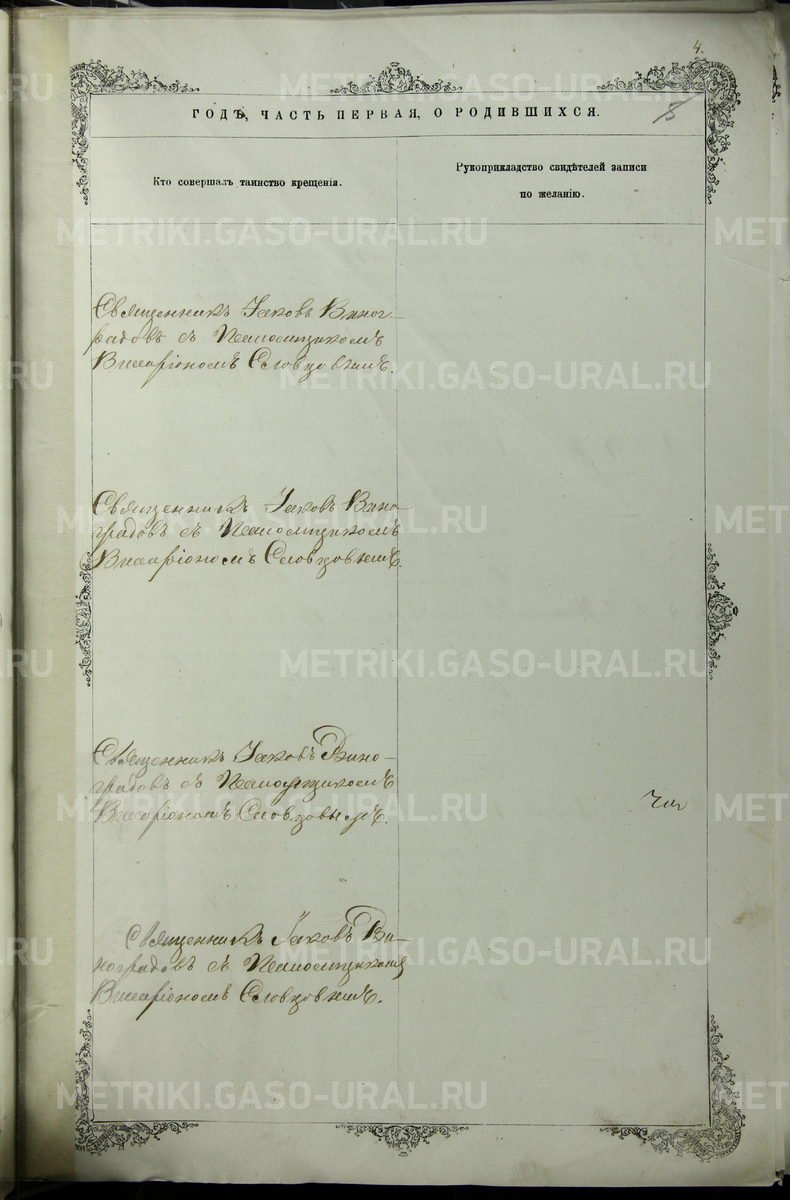 4.
ГОДѢ, ЧАСТЬ ПЕРВАЯ, О РОДИВШИХСЯ.
Кто совершалъ таинство крещенія.
Рукоприкладство свидѣтелей записи
по желанію.
Священникъ Іаковъ Виног-
радовъ съ Псаломщикомъ
Виссаріономъ Словцовымъ.
Священникъ Іаковъ Вино-
градовъ съ Псаломщикомъ
Виссаріономъ Словцовымъ.
Священникъ Іаковъ Вино-
градовъ съ Псаломщикомъ
Виссаріономъ Словцовымъ.
Священникъ Іаковъ Ви-
ноградовъ съ Псаломщикомъ
Виссаріономъ Словцовымъ.
METRIKI.GASO-URAL.RU